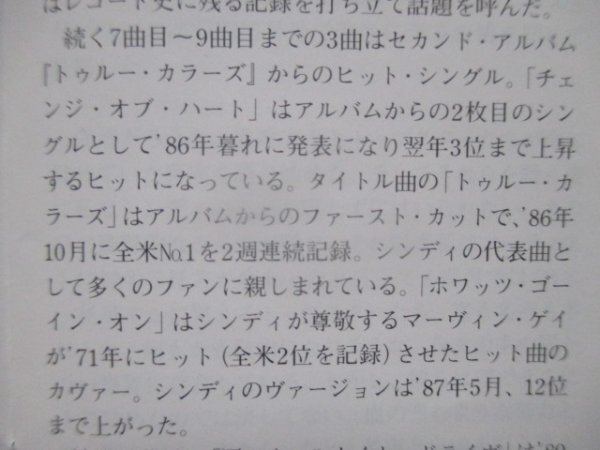 はレコード史に残る記録を打ち立て話題を呼んだ。
続く7曲目〜9曲目までの3曲はセカンド・アルバム
『トゥルー・カラーズ』からのヒット・シングル。「チェ
ンジ・オブ・ハート」はアルバムからの2枚目のシン
グルとして'86年暮れに発表になり翌年3位まで上昇
するヒットになっている。タイトル曲の「トゥルー・カ
ラーズ」はアルバムからのファースト・カットで、'86年
10月に全米No.1を2週連続記録。シンディの代表曲と
して多くのファンに親しまれている。「ホワッツ・ゴー
イン・オン」はシンディが尊敬するマーヴィン・ゲイ
が'71年にヒット(全米2位を記録)させたヒット曲の
カヴァー。シンディのヴァージョンは'87年5月、12位
まで上がった。